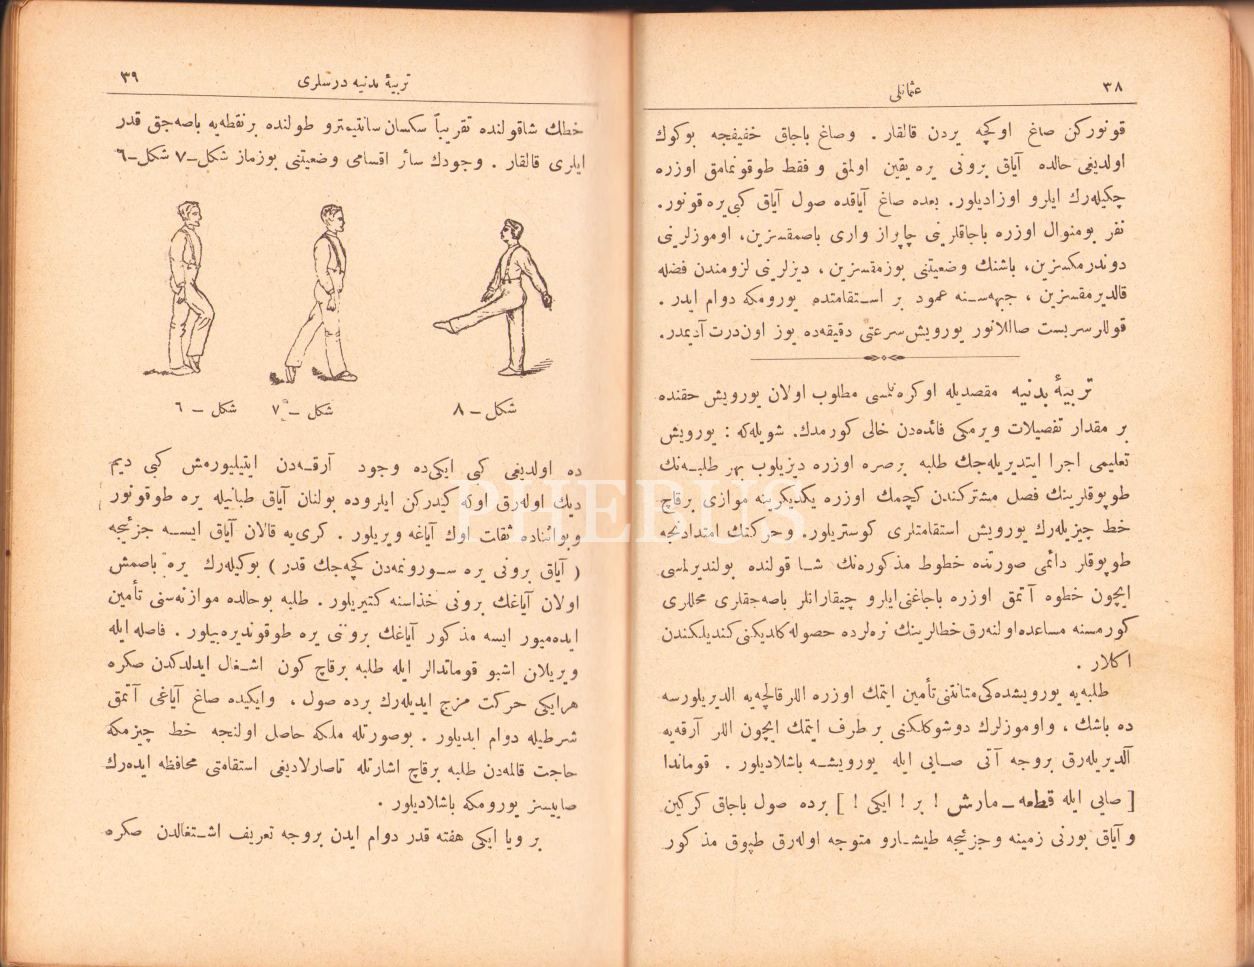 ٣٨
عثمانلى
قونوركن صاغ اوكچه يردن قالقار . وصاغ باجاق خفيفجه بوكوك
اولديغى حالده آياق برونى يره يقين اولمق و فقط طوقونمامق اوزره
چكيله‌رك ايلرو اوزاديلور . بعده صاغ آياقده صول آياق كبى يره قونور.
نفر بومنوال اوزره باجاقلرينى چاپراز وارى باصمقسزين، اوموزلرينى
دوندرمكسزين، باشنك وضعيتنى بوزمقسزين ، ديزلرينى لزومندن فضله
قالديرمقسزين ، جبهه‌سنه عمود بر استقامتده يورومكه دوام ايدر .
قوللر سربست صاللانور يورويش سرعتى دقيقه‌ده يوز اون درت آديمدر.
تربيهٔ بدنيه مقصديله اوكره‌نلمسى مطلوب اولان يورويش حقنده
بر مقدار تفصيلات ويرمكى فائده‌دن خالى كورمدك. شويله‌كه : يورويش
تعليمى اجرا ايتديريله‌جك طلبه برصره اوزره ديزيلوب بهر طلبه‌نك
طوپوقلرينك فصل مشتركندن كچمك اوزره يكديكرينه موازى برقاچ
خط چيزيله‌رك يورويش استقامتلرى كوستريلور. وحركتك امتدادنجه
طوپوقلر دائمى صورتده خطوط مذكوره‌نك شاقولنده بولنديرلمسى
ايچون خطوه آتمق اوزره باجاغنى ايلرو چيقارانلر باصه‌جقلرى محللرى
كورمسنه مساعده اولنه‌رق خطالرينك نره‌لرده حصوله كلديكنى كنديلكندن
اكلار .
طلبه‌يه يورويشده‌كى متانتنى تأمين ايتمك اوزره اللر قالچه‌يه الديريلورسه
ده باشك ، واوموزلرك دوشوكلكنى برطرف ايتمك ايچون اللر آرقه‌يه
آلديريله‌رق بروجه آتى صايى ايله يورويشه باشلاديلور . قوماندا
[ صايى ايله قطعه ــ مارش ! بر ! ايكى ! ] برده صول باجاق كركين
و آياق بورنى زمينه وجزئيجه طيشارو متوجه اوله‌رق طپوق مذكور
٣٩
تربيهٔ بدنيه درسلرى
خطك شاقولنده تقريباً سكسان سانتيمترو طولنده بر نقطه‌يه باصه‌جق قدر
ايلرى قالقار . وجودك سائر اقسامى وضعيتنى بوزماز شكل ــ ٧ شكل ــ ٦
شكل ــ ٨
شكل ــ ٧
شكل ــ ٦
ده اولديغى كبى ايكى‌ده وجود آرقه‌دن ايتيليورمش كبى ديم
ديك اوله‌رق اوكه كيدركن ايلروده بولنان آياق طبانيله يره طوقونور
وبواثناده ثقلت اوك آياغه ويريلور . كرى‌يه قالان آياق ايسه جزئيجه
( آياق برونى يره سورونمه‌دن كچه‌جك قدر ) بوكيله‌رك يره باصمش
اولان آياغك برونى خذاسنه كتيريلور . طلبه بوحالده موازنه‌سنى تأمين
ايده‌ميور ايسه مذكور آياغك برونى يره طوقونديره‌بيلور . فاصله ايله
ويريلان اشبو قوماندالر ايله طلبه برقاچ كون اشغال ايدلدكدن صكره
هرايكى حركت مزج ايديله‌رك برده صول ، وايكيده صاغ آياغى آتمق
شرطيله دوام ايديلور . بوصورتله ملكه حاصل اولنجه خط چيزمكه
حاجت قالمه‌دن طلبه برقاچ اشارتله تاصارلاديغى استقامتى محافظه ايده‌رك
صاييسز يورومكه باشلاديلور .
بر ويا ايكى هفته قدر دوام ايدن بروجه تعريف اشتغالدن صكره
PHEBUS